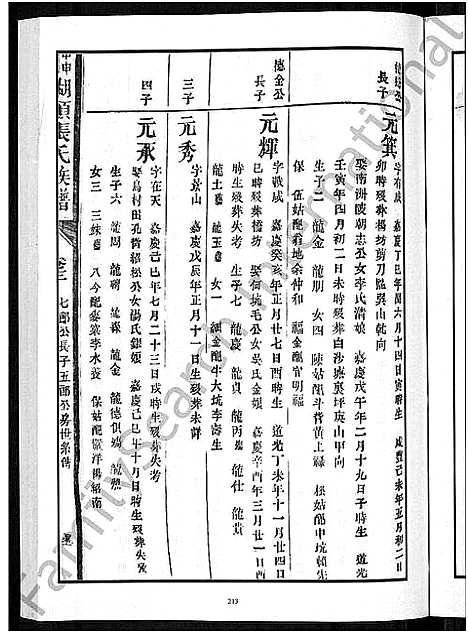 長子
元箕
字有成 嘉慶丁巳年閏六月十四日寅時生 咸豐己未年五月初二日
卯時歿葬楊坊剪刀隘巽山乾向
娶南洲陵朝志公女李氏清娘 嘉慶戊午年二月十九日子時生 道光
壬寅年四月初二日未時歿葬白沙塘裏坪艮山甲向
生子二 龍金 龍朋 女四 陳姑配斗營黃上祿 極姑配中坑賴先
保 伍姑配翁地余仲和 福金配官明福
德金公
長子
元輝
字戰成 嘉慶癸亥年正月廿七日酉時生 道光丁未年十一月廿四日
巳時歿葬橋坊 娶何坑毛公女吳氏金娘 嘉慶辛酉年三月廿一日酉
時生歿葬失考 生子七 龍慶 龍貞 龍丙 龍仕 龍貴
龍土 龍玉 女一 細金配牛大坑李壽生
三子
元秀
字景山 嘉慶戊辰年正月十一日生歿葬未詳
四子
元承
字在天 嘉慶己巳年七月二十三日戌時生歿葬失考
娶烏村田孔彩招松公女湯氏銀娘 嘉慶己巳年十月日時生歿葬失考
生子六 龍周 龍 龍 龍金 龍德俱殤 龍
女三 三妹 八今配李水養 保姑配洋楊紹南
湖頭張氏族譜
卷二
七郎公長子五郎公房世系傳
213
FamilySearch International